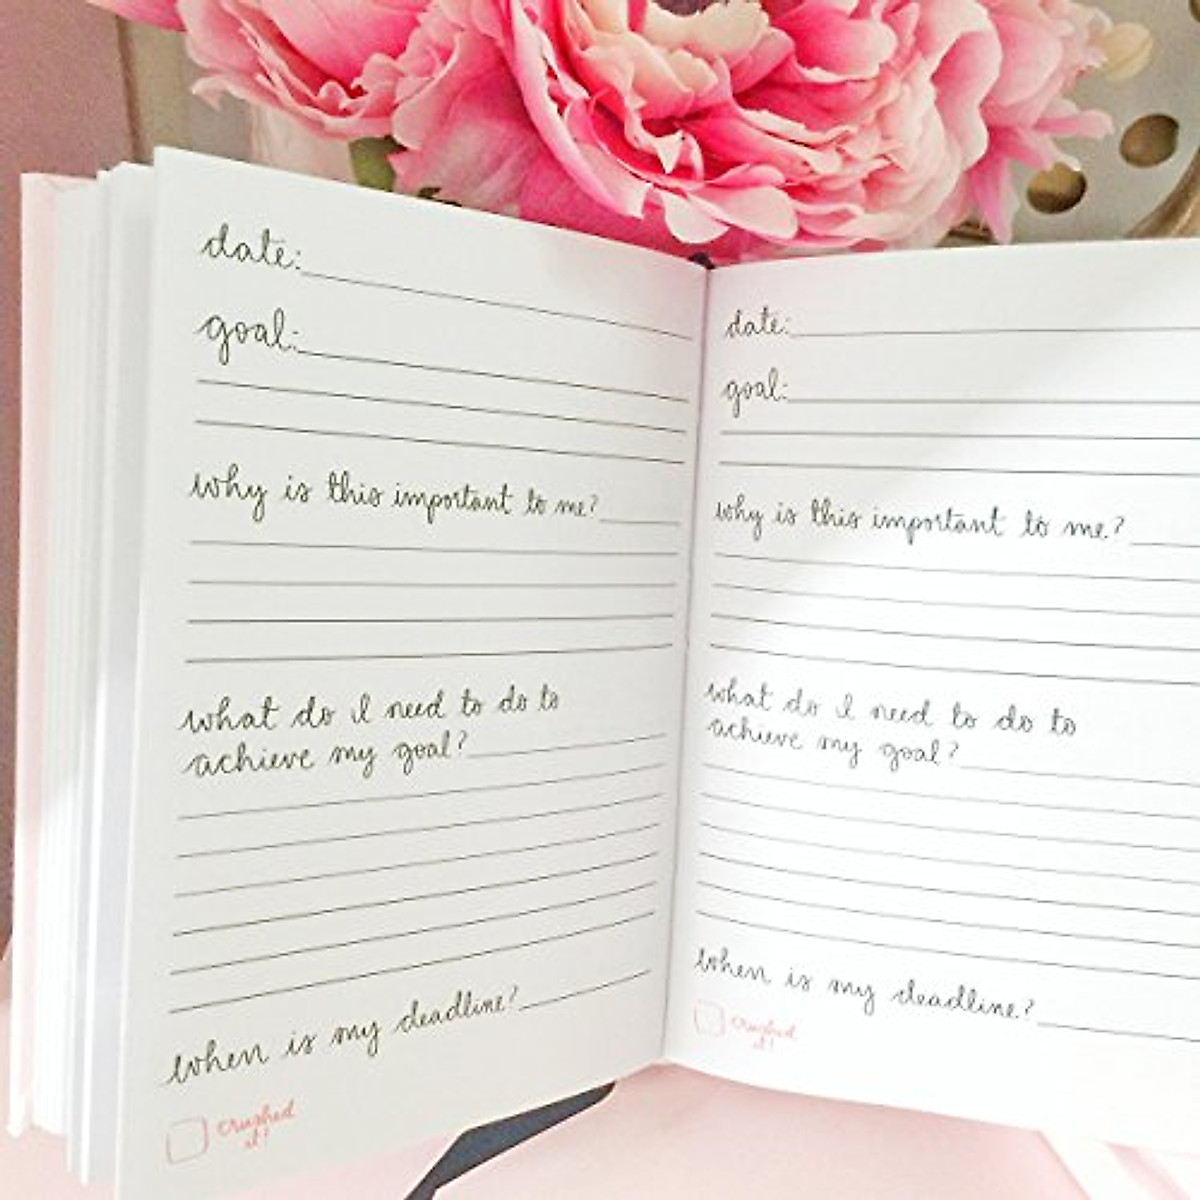 date:
goal:
why is this important to me?
what do I need to do to
achieve my goal?
when is my deadline?
crushed
it!
date:
goal:
why is this important to me?
what do I need to do to
achieve my goal?
when is my deadline?
crushed
it!